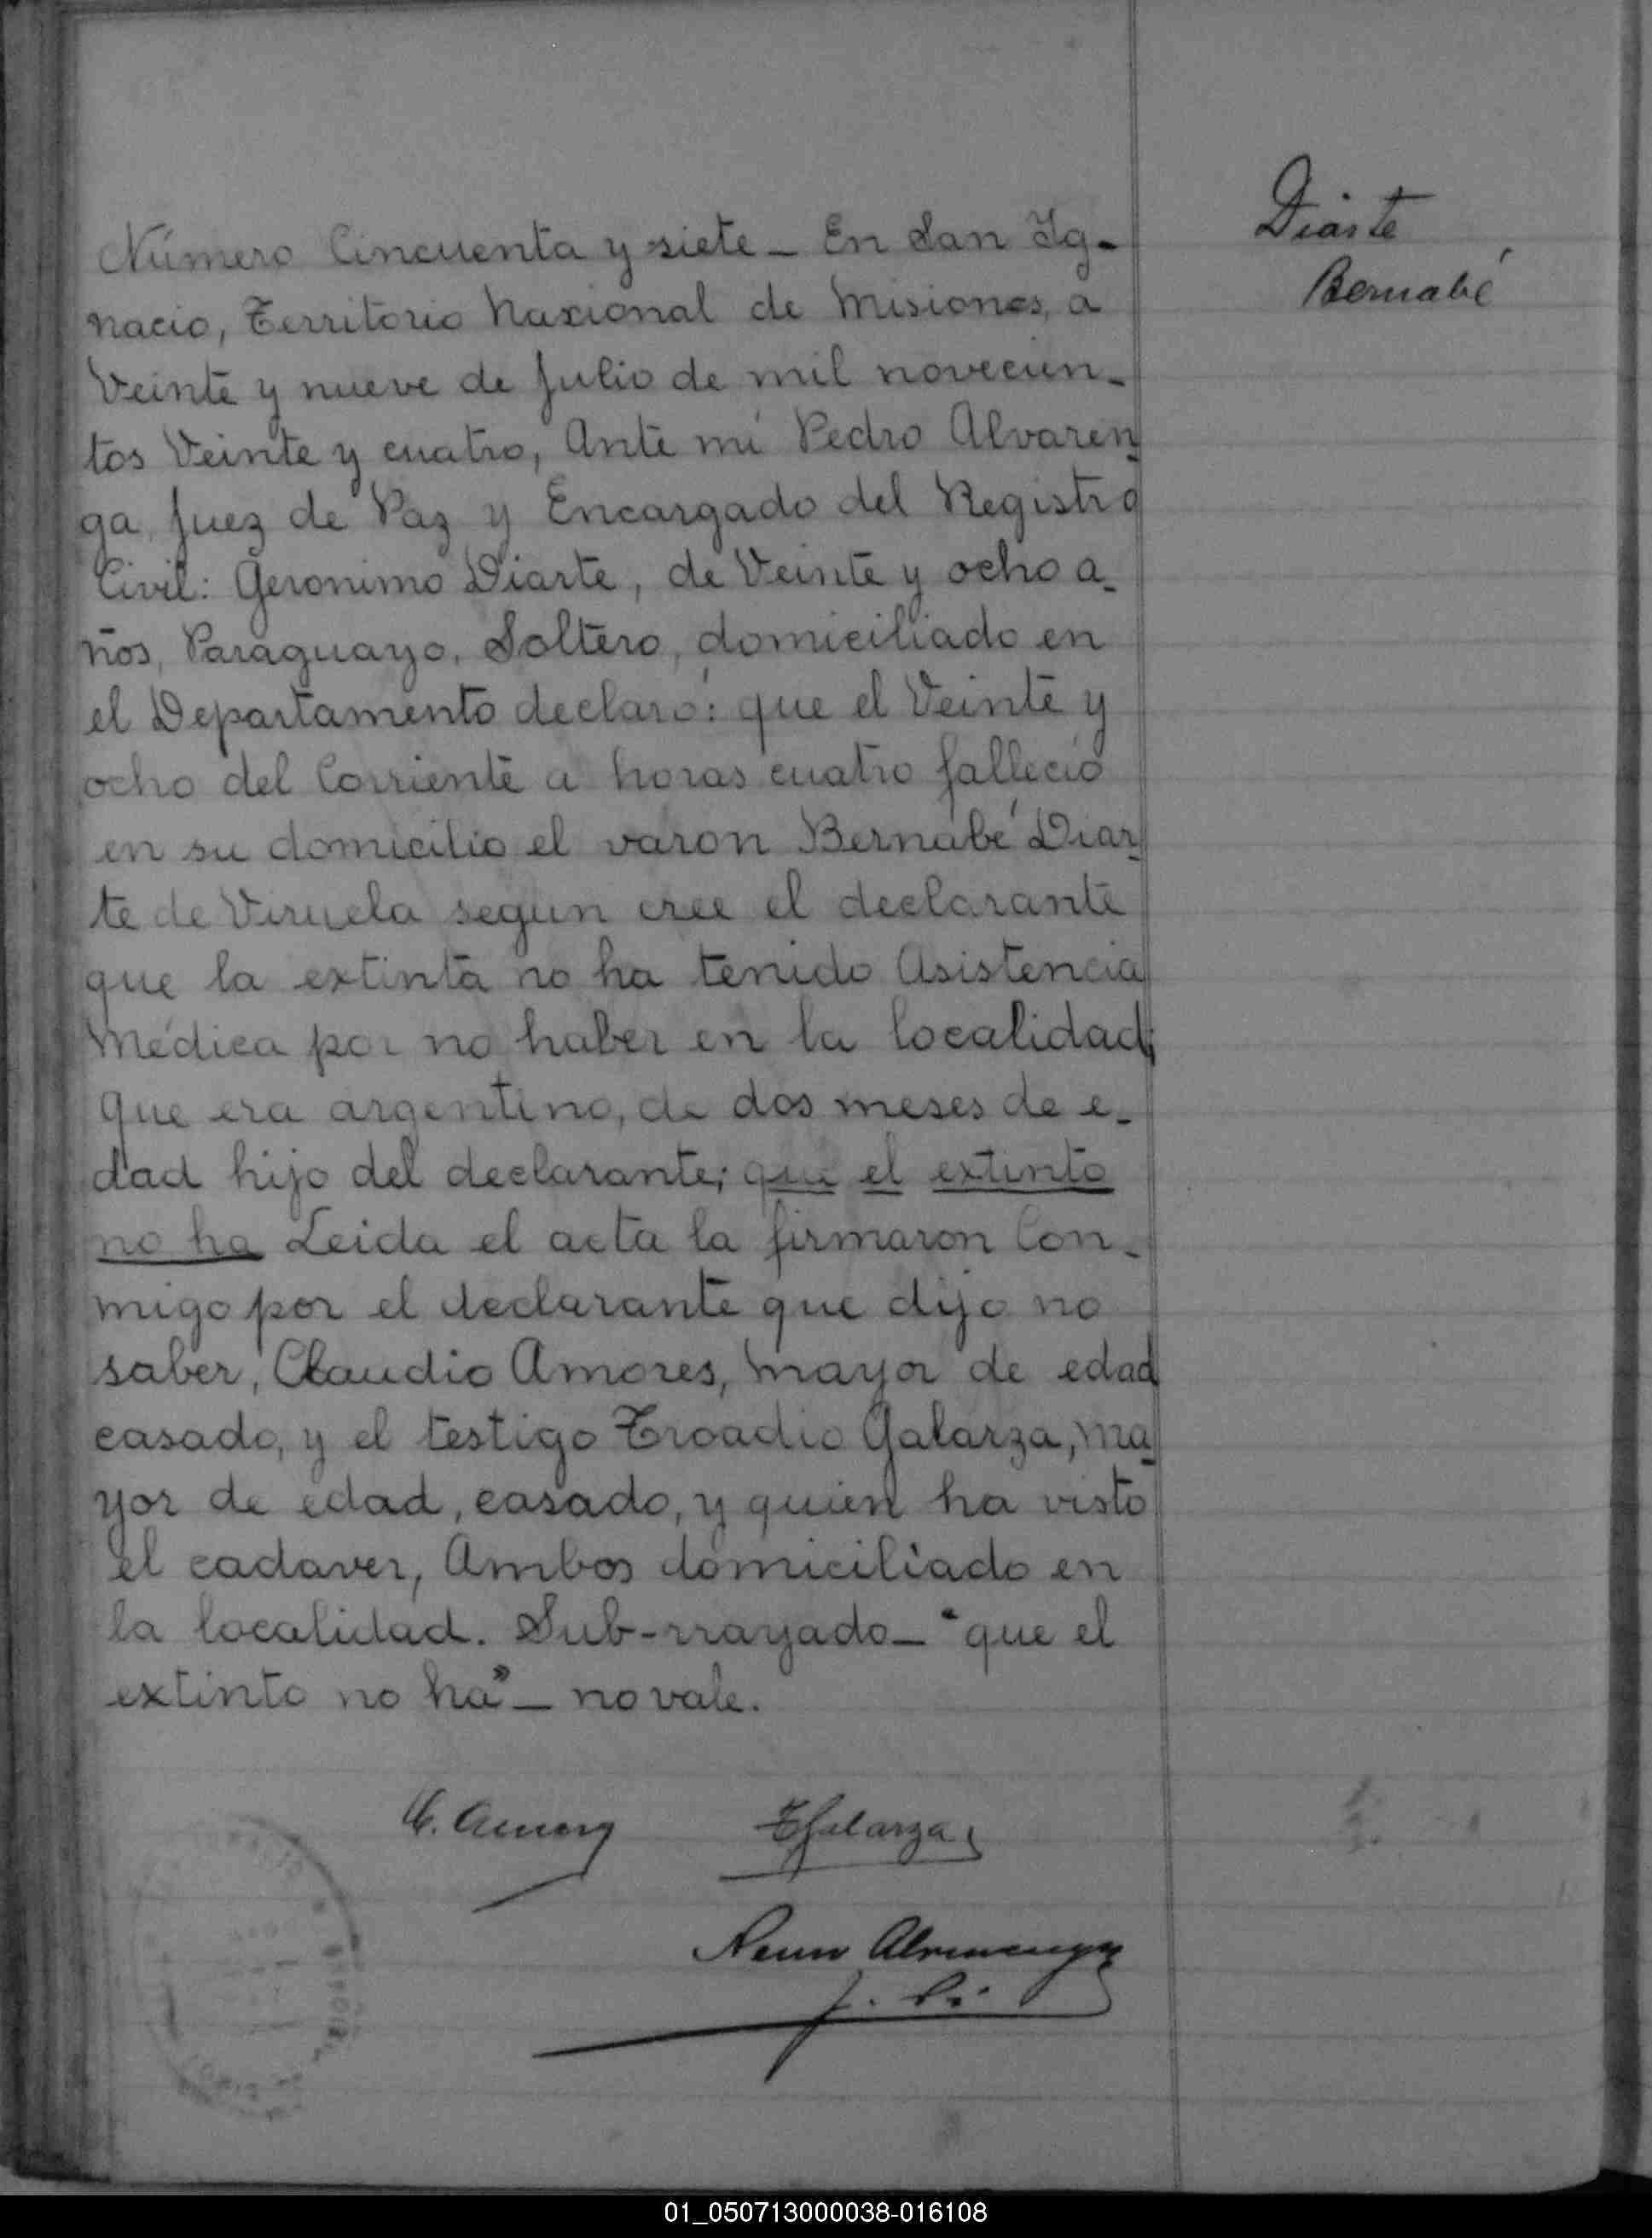 Diarte
Bernabé
Número Cincuenta y siete – En San Ig-
nacio, Territorio Nacional de Misiones, a
Veinte y nueve de Julio de mil novecien-
tos Veinte y cuatro, Ante mi Pedro Alvaren-
ga, Juez de Paz y Encargado del Registro
Civil: Geronimo Diarte, de Veinte y ocho a-
ños, Paraguayo, Soltero, domiciliado en
el Departamento declaró: que el Veinte y
ocho del Corriente a horas cuatro falleció
en su domicilio el varon Bernabé Diar-
te de Viruela segun cree el declarante
que la extinta no ha tenido Asistencia
Médica por no haber en la localidad;
que era argentino, de dos meses de e-
dad hijo del declarante; que el extinto
no ha Leida el acta la firmaron Con-
migo por el declarante que dijo no
saber, Claudio Amores, mayor de edad
casado, y el testigo Troadio Galarza, ma-
yor de edad, casado, y quien ha visto
el cadaver, Ambos domiciliado en
la localidad. Sub-rrayado – "que el
extinto no ha" – no vale.
C. Amores
TGalarza
Alvarenga
01_050713000038-016108